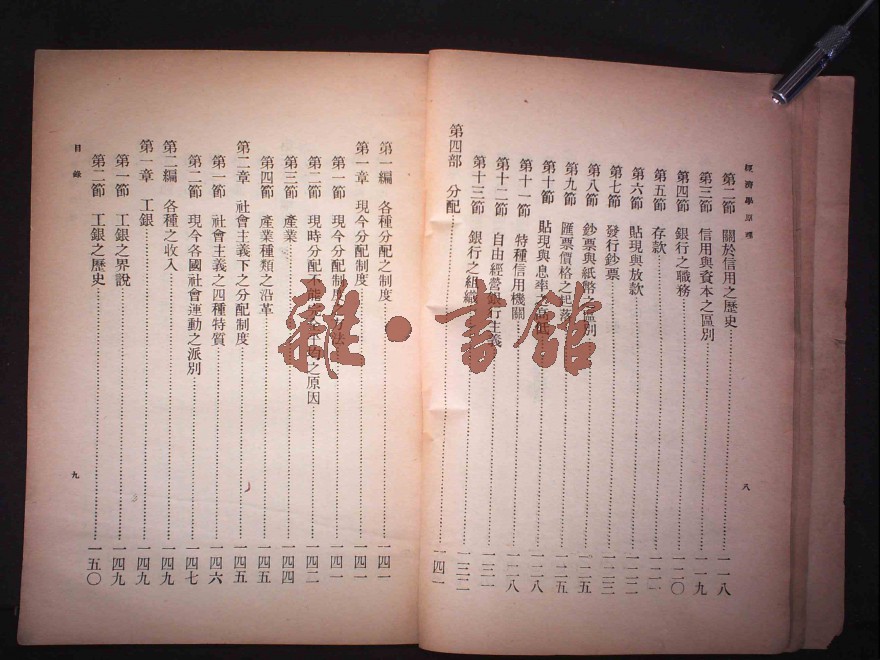 經濟學原理
第二節 關於信用之歷史 一一八
第三節 信用與資本之區別 一一九
第四節 銀行之職務 一二〇
第五節 存款 一二一
第六節 貼現與放款 一二二
第七節 發行鈔票 一二三
第八節 鈔票與紙幣之區別 一二五
第九節 匯票價格之起落 一二五
第十節 貼現與息率之高低 一二八
第十一節 特種信用機關 一二八
第十二節 自由經營銀行主義 一三一
第十三節 銀行之組織 一三二
第四部 分配 一四一
八
第一編 各種分配之制度 一四一
第一章 現今分配制度 一四一
第一節 現今分配制度之方法 一四一
第二節 現時分配不能完全平均之原因 一四二
第三節 產業 一四四
第四節 產業種類之沿革 一四五
第二章 社會主義下之分配制度 一四五
第一節 社會主義之四種特質 一四六
第二節 現今各國社會運動之派別 一四七
第二編 各種之收入 一四九
第一章 工銀 一四九
第一節 工銀之界說 一四九
第二節 工銀之歷史 一五〇
目錄
九
雜·書館